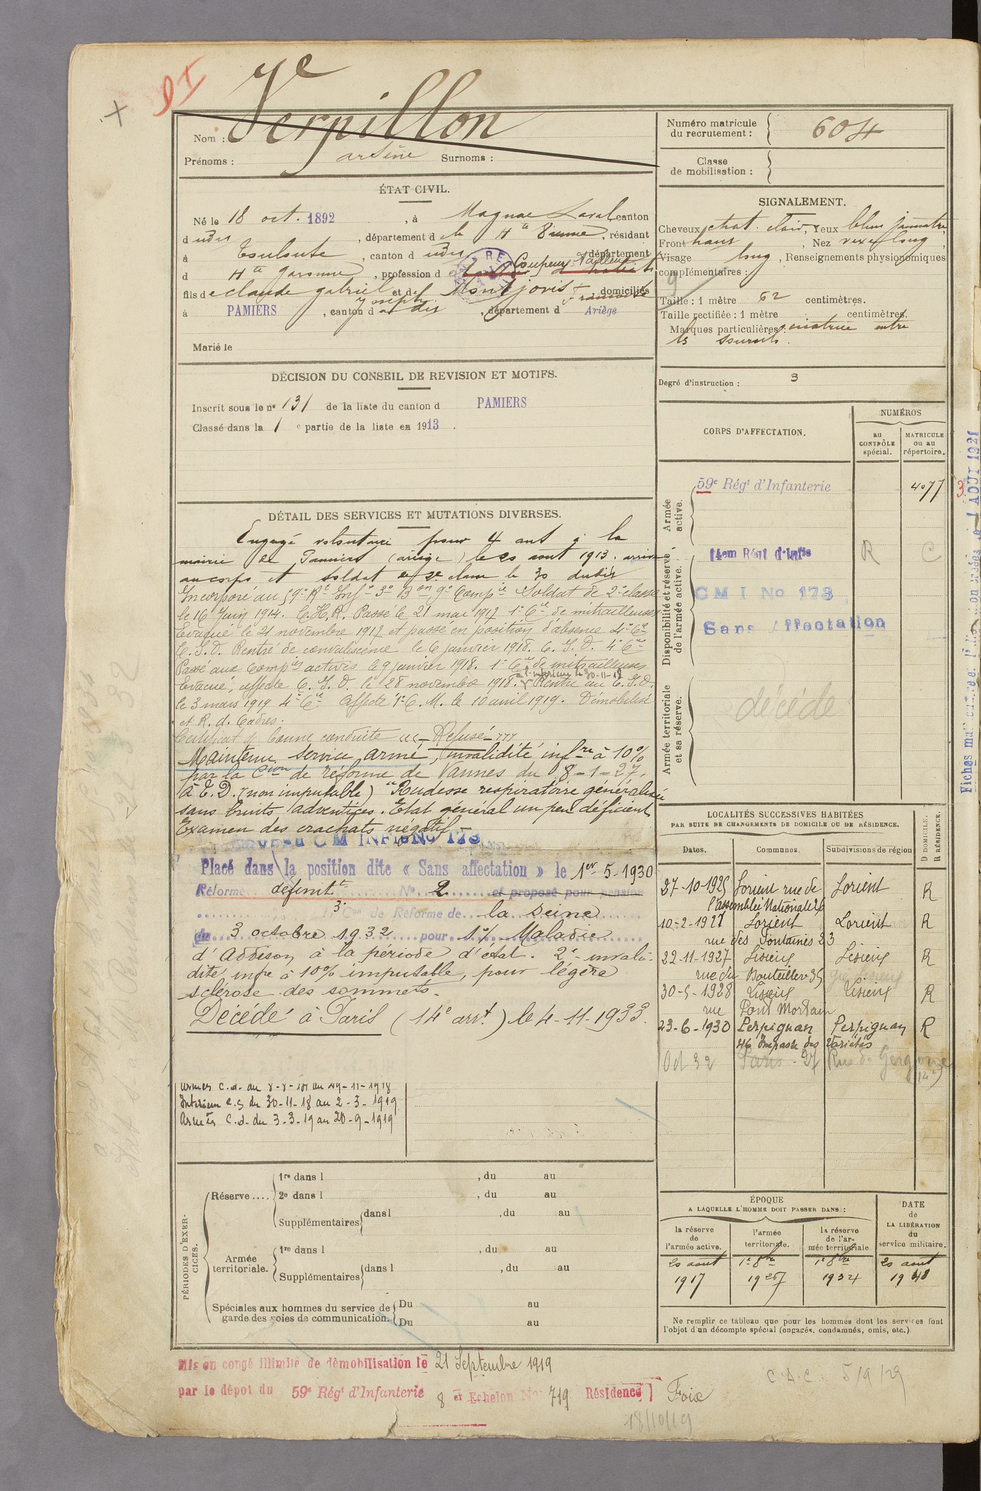 Nom : Verpillon
Prénoms : arsène Surnoms :
Numéro matricule du recrutement : 604
Classe de mobilisation :
ÉTAT CIVIL.
Né le 18 oct. 1892, à Magnac Laval canton
d udis, département de la Hte Vienne, résidant
à Toulouse, canton d udis, département
d Hte Garonne, profession de Coupeur Tailleur
fils de claude gabriel joseph et de Montjovis françoise, domiciliés
à PAMIERS, canton d udis, département d Ariège
Marié le
SIGNALEMENT.
Cheveux chat. clair, Yeux bleu jaunâtre
Front haut, Nez long,
Visage long, Renseignements physionomiques
complémentaires :
Taille : 1 mètre 62 centimètres.
Taille rectifiée : 1 mètre centimètres.
Marques particulières : cicatrice entre
les sourcils.
Degré d'instruction : 3
DÉCISION DU CONSEIL DE REVISION ET MOTIFS.
Inscrit sous le n° 131 de la liste du canton d PAMIERS
Classé dans la 1e partie de la liste en 1913.
CORPS D'AFFECTATION.
NUMÉROS
au CONTRÔLE spécial.
MATRICULE ou au répertoire.
Armée active.
59e Régt d'Infanterie 4077
Disponibilité et réserve de l'armée active.
14em Régt d'Infie R C
C M I No 173
Sans Affectation
Armée territoriale et sa réserve.
décédé
DÉTAIL DES SERVICES ET MUTATIONS DIVERSES.
Engagé volontaire pour 4 ans à la
mairie de Pamiers (ariège) le 20 aout 1913. arrivé
au corps et soldat de 2e classe le 30 dudit
Incorporé au 59e Rt Infie 3e Bon 9e Compie Soldat de 2e classe
le 16 Juin 1914. C.H.R. Passé le 21 mai 1917 1e Cie de mitrailleuses
Evacué le 21 novembre 1917 et passé en position d'absence 4e Cie
C.I.D. Rentré de convalescence le 6 janvier 1918. C.I.D. 4e Cie
Passé aux Compies actives le 9 janvier 1918. 1e Cie de mitrailleuses
Evacué, affecté C.I.D. le 28 novembre 1918. Rentré au C.I.D.
le 3 mars 1919 4e Cie Affecté 1e C.M. le 10 avril 1919. Démobilisé
et R. d. Cadres.
Certificat de bonne conduite "Refusé"
Maintenu service armé, invalidité infre à 10%
par la Cion de réforme de Vannes du 8-1-27,
à E.D. (non imputable) "Rudesse respiratoire généralisée
sans bruits adventices. Etat général un peu déficient
Examen des crachats négatif"
C M INFIE No 173
Placé dans la position dite « Sans affectation » le 1er-5-1930
Réformé définitt N° 2 et proposé pour pension
3e Cion de Réforme de la Seine
du 3 octobre 1932 pour 1°/ Maladie
d'Addison à la période d'état. 2°- invali-
dité infre à 10% imputable, pour légère
sclérose des sommets.
Décédé à Paris (14e arrt.) le 4-11-1933.
Intérieur C.S. du 30-11-18 au 2-3-1919
Armées C.d. du 3-3-19 au 20-9-1919
LOCALITÉS SUCCESSIVES HABITÉES
PAR SUITE DE CHANGEMENTS DE DOMICILE OU DE RÉSIDENCE.
Dates. Communes. Subdivisions de région D. DOMICILE. R. RÉSIDENCE.
27-10-1925 Lorient rue de l'assemblée Nationale 26 Lorient R
10-2-1927 Lorient Lorient R
rue des Fontaines 23
22-11-1927 Lisieux Lisieux R
rue du Bouteiller 35
30-5-1928 Lisieux Lisieux R
rue Pont Mortain
23-6-1930 Perpignan Perpignan R
46 Impasse des Variétés
Oct 32 Paris - 27 Rue de Gergovie
PÉRIODES D'EXERCICES.
Réserve....
1re dans l , du au
2e dans l , du au
Supplémentaires dans l , du au
Armée territoriale.
1re dans l , du au
Supplémentaires dans l , du au
Spéciales aux hommes du service de garde des voies de communication.
Du au
Du au
ÉPOQUE
A LAQUELLE L'HOMME DOIT PASSER DANS :
la réserve de l'armée active. l'armée territoriale. la réserve de l'armée territoriale.
DATE de LA LIBÉRATION du service militaire.
20 aout 1917
1er 8bre 1927
1er 8bre 1934
20 aout 1940
Ne remplir ce tableau que pour les hommes dont les services font
l'objet d'un décompte spécial (engagés, condamnés, omis, etc.)
Mis en congé illimité de démobilisation le 21 Septembre 1919
par le dépôt du 59e Régt d'Infanterie 8 e Echelon No 719 Résidence Foix
C.d.C. 5/9/29
18/10/19